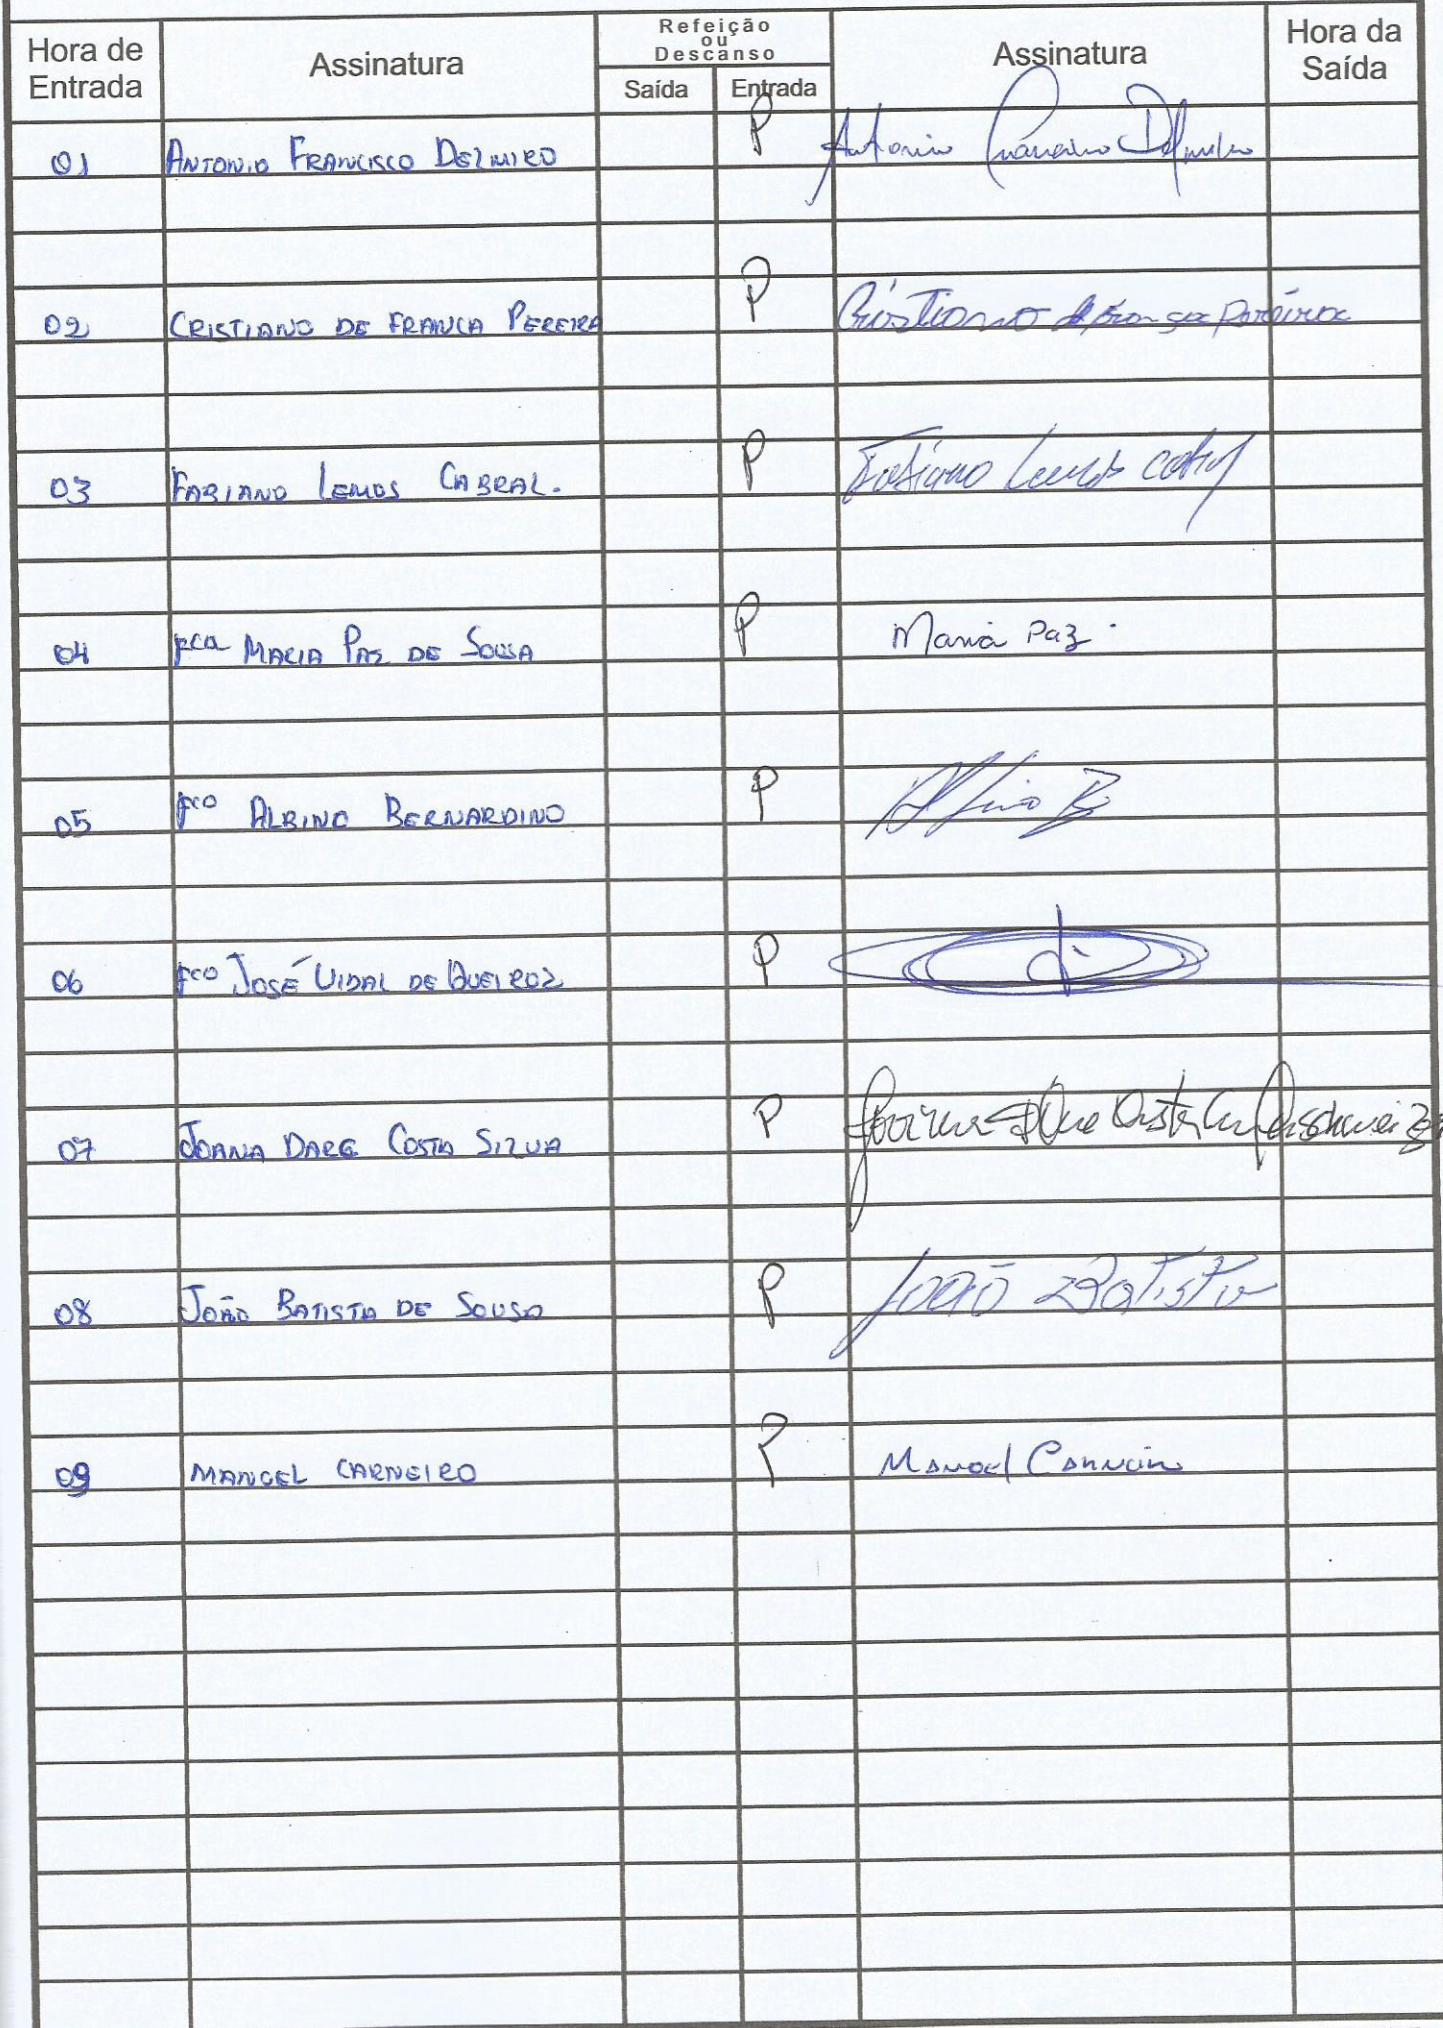 Hora de Entrada Assinatura Refeição ou Descanso Saída Entrada Assinatura Hora da Saída
01 ANTONIO FRANCISCO DELMIRO P Antonio Francisco Delmiro
02 CRISTIANO DE FRANCA PEREIRA P Cristiano de França Pereira
03 FABIANO LEMOS CABRAL. P Fabiano Lemos Cabral
04 Fca MARIA PAZ DE SOUSA P Maria Paz
05 Fco ALBINO BERNARDINO P
06 Fco JOSÉ VIDAL DE QUEIROZ P
07 JOANA DARC COSTA SILVA P
08 JOÃO BATISTA DE SOUSA P João Batista
09 MANOEL CARNEIRO P Manoel Carneiro